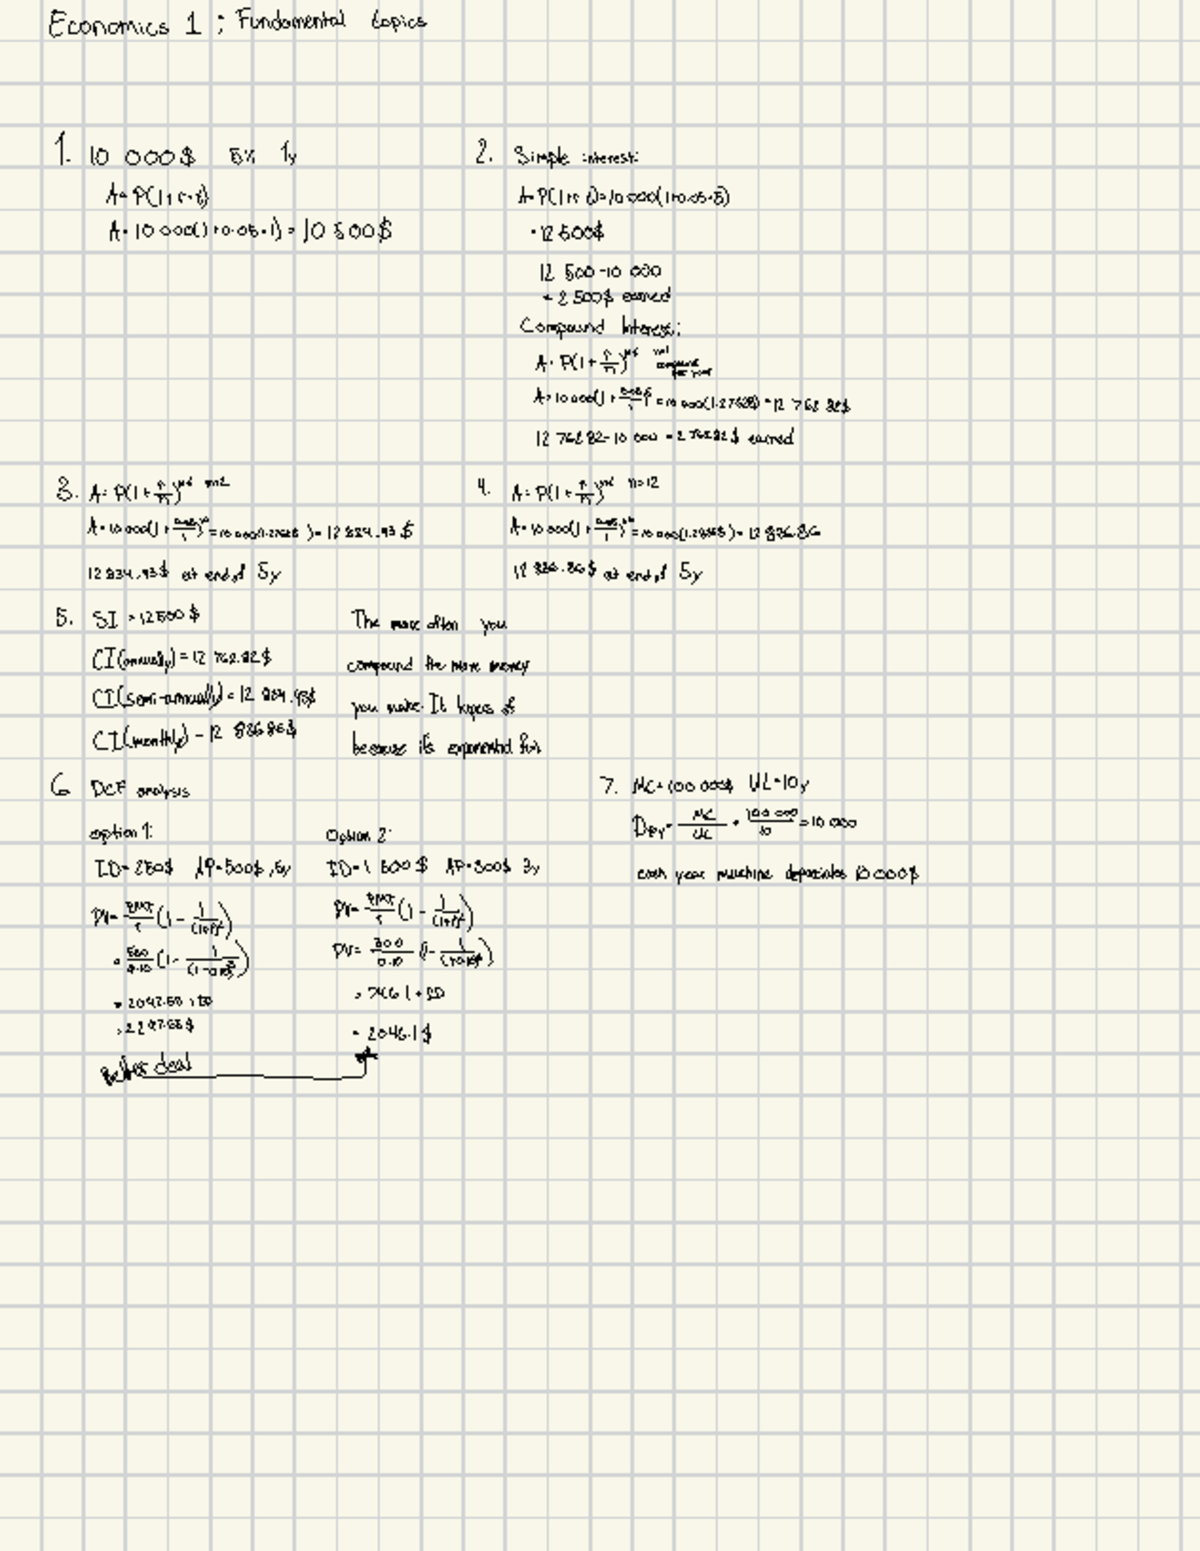 Economics 1 ; Fundamental topics
1. 10 000$ 5% 1y
A=P(1+r·t)
A=10 000(1+0.05·1)=10 500$
2. Simple interest:
A=P(1+r·t)=10 000(1+0.05·5)
=12 500$
12 500-10 000
=2 500$ earned
Compound Interest:
A=P(1+r/n)^n·t n=1
A=10 000(1+ = 10 000(1.27628) = 12 762.82$
12 762.82-10 000 = 2 762.82$ earned
3. A=P(1+r/n)^n·t n=2
A=10 000(1+ = 12 834.93$
12 834.93$ at end of 5y
4. A=P(1+r/n)^n·t n=12
A=10 000(1+ = 12 836.86
12 836.86$ at end of 5y
5. SI = 12 500$
CI(annually) = 12 762.82$
CI(semi-annually) = 12 834.93$
CI(monthly) = 12 836.86$
The more often you
compound the more money
you make. It of
because it's exponential
6 DCF analysis
option 1:
ID=250$ AP=500$, 5y
PV=PMT/r(1-1/(1+r)^t)
=500/0.10(1-
=2 2
Better deal
Option 2:
ID=1 500$ AP=300$ 3y
PV=PMT/r(1-1/(1+r)^t)
PV=300/0.10(1-
= 746.1+ID
= 2046.1$
7. MC=100 000$ UL=10y
= MC/UL = 100 000/10 = 10 000
each year machine 10 000$